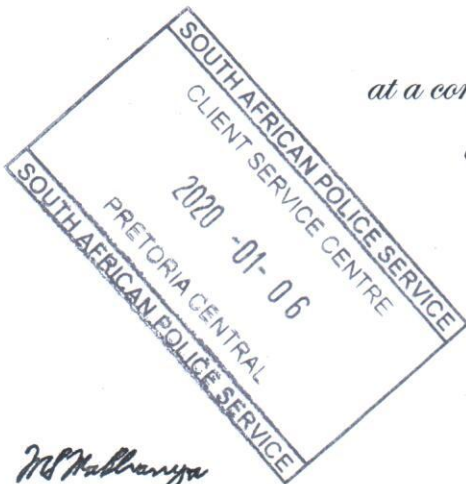 at a con
SOUTH AFRICAN POLICE SERVICE
CLIENT SERVICE CENTRE
2020 -01- 06
PRETORIA CENTRAL
SOUTH AFRICAN POLICE SERVICE